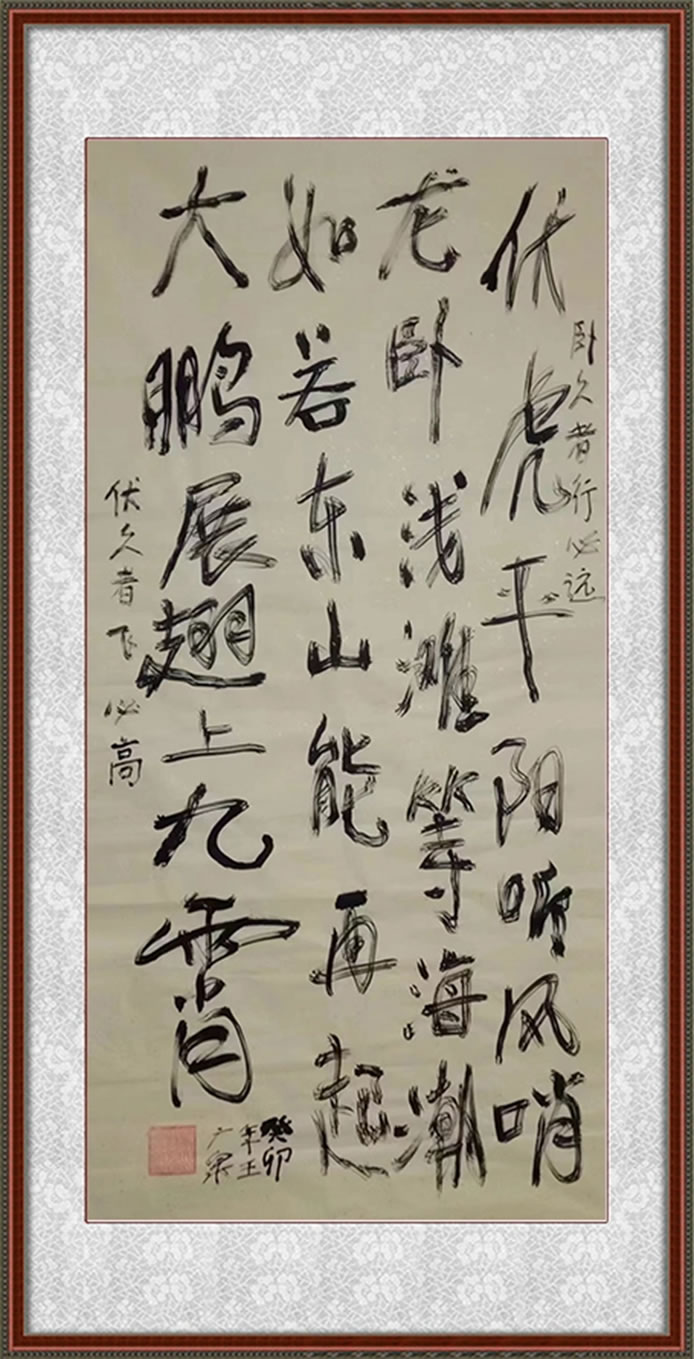 卧久者行必远
伏虎平阳听风哨
龙卧浅滩等海潮
如若东山能再起
大鹏展翅上九霄
伏久者飞必高
癸卯
年王
广